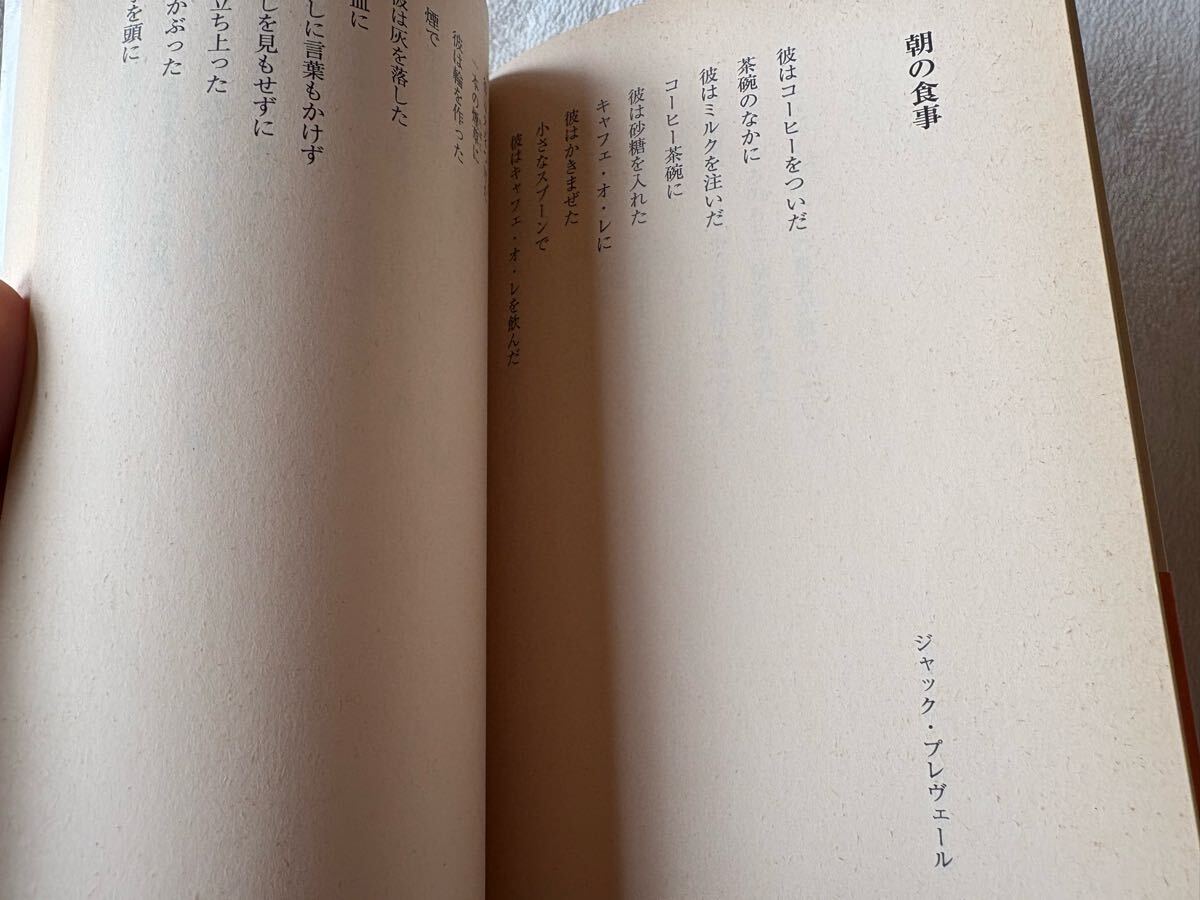 朝の食事
ジャック・プレヴェール
彼はコーヒーをついだ
茶碗のなかに
彼はミルクを注いだ
コーヒー茶碗に
彼は砂糖を入れた
キャフェ・オ・レに
彼はかきまぜた
小さなスプーンで
彼はキャフェ・オ・レを飲んだ
彼は輪を作った
煙で
彼は灰を落した
皿に
しに言葉もかけず
しを見もせずに
立ち上った
かぶった
を頭に